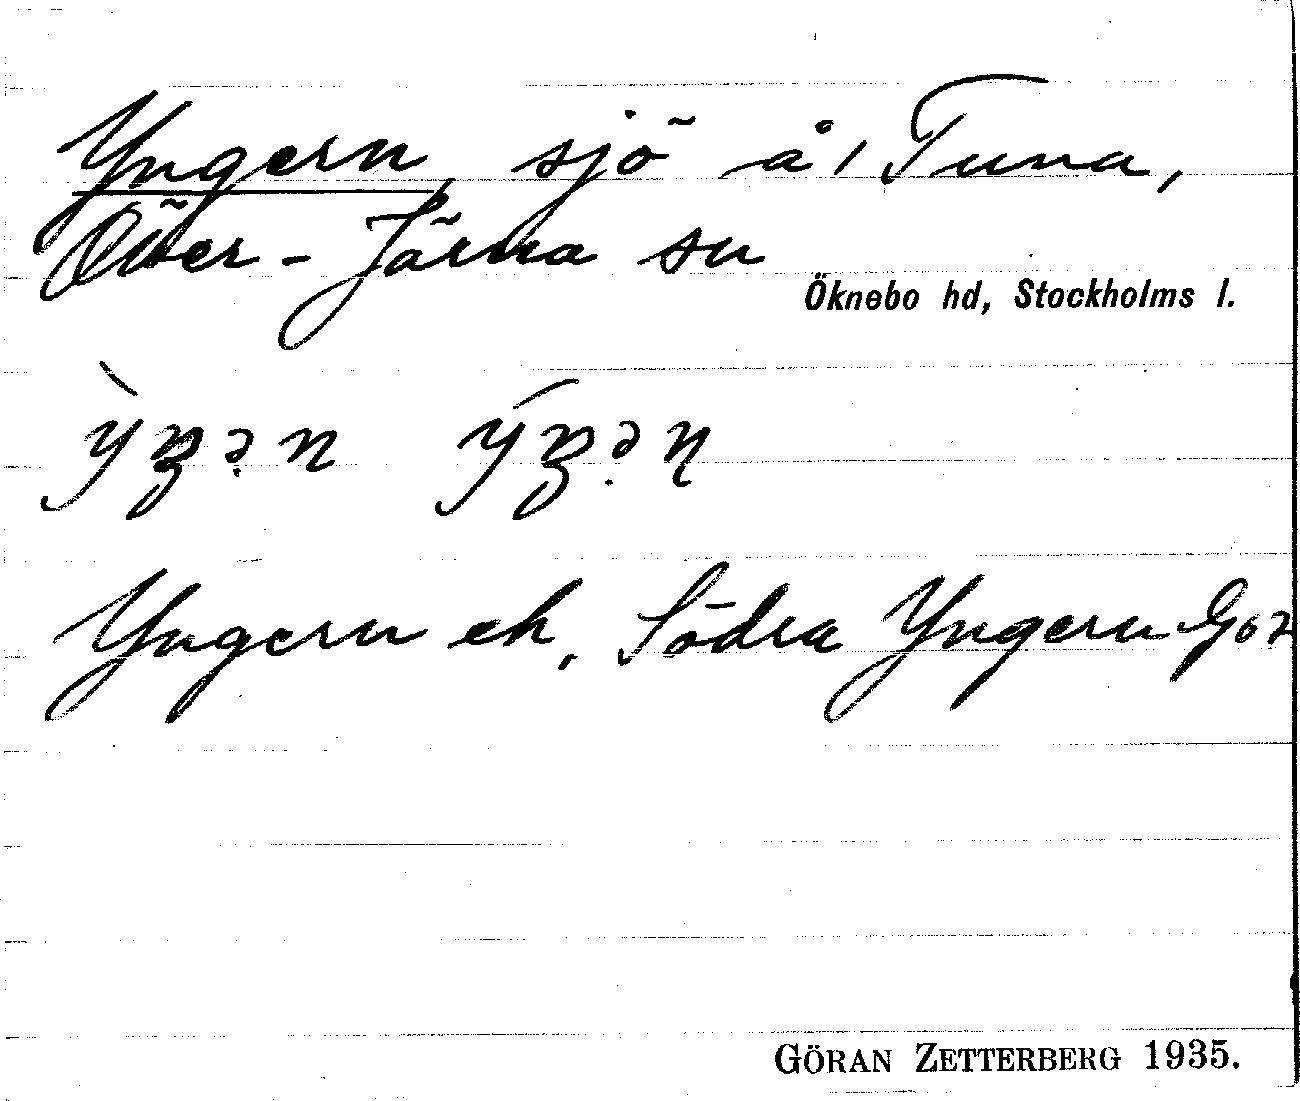 Yngern, sjö å/ Tuna,
Över-Järna sn
Öknebo hd, Stockholms l.
ỳŋə̣n ýŋə̣n
Yngern ek, Södra Yngern Gsk
GÖRAN ZETTERBERG 1935.